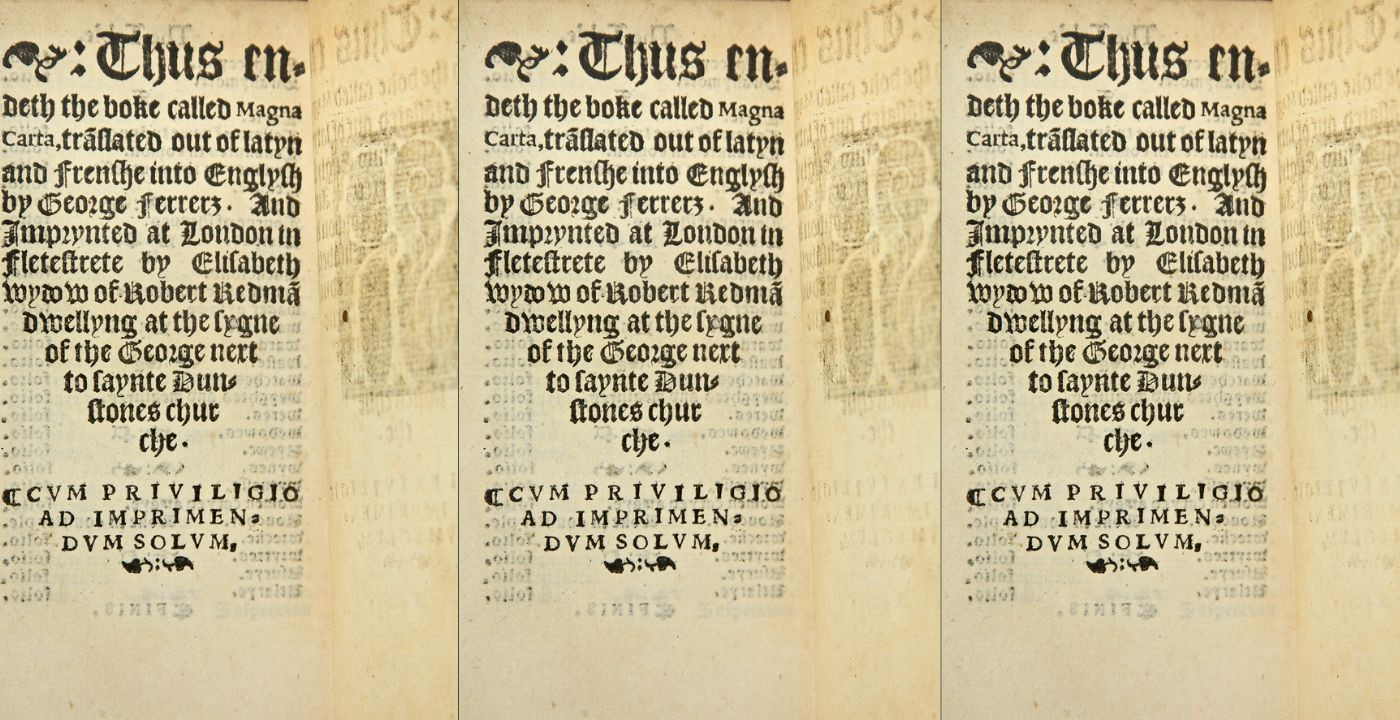 Thus en⸗
deth the boke called Magna
Carta, trãslated out of latyn
and Frenshe into Englysh
by George Ferrerz. And
Imprynted at London in
Fletestrete by Elisabeth
wydow of Robert Redmã
dwellyng at the sygne
of the George next
to saynte Dun⸗
stones chur
che.
¶CVM PRIVILIGIO
AD IMPRIMEN⸗
DVM SOLVM,
Thus en⸗
deth the boke called Magna
Carta, trãslated out of latyn
and Frenshe into Englysh
by George Ferrerz. And
Imprynted at London in
Fletestrete by Elisabeth
wydow of Robert Redmã
dwellyng at the sygne
of the George next
to saynte Dun⸗
stones chur
che.
¶CVM PRIVILIGIO
AD IMPRIMEN⸗
DVM SOLVM,
Thus en⸗
deth the boke called Magna
Carta, trãslated out of latyn
and Frenshe into Englysh
by George Ferrerz. And
Imprynted at London in
Fletestrete by Elisabeth
wydow of Robert Redmã
dwellyng at the sygne
of the George next
to saynte Dun⸗
stones chur
che.
¶CVM PRIVILIGIO
AD IMPRIMEN⸗
DVM SOLVM,